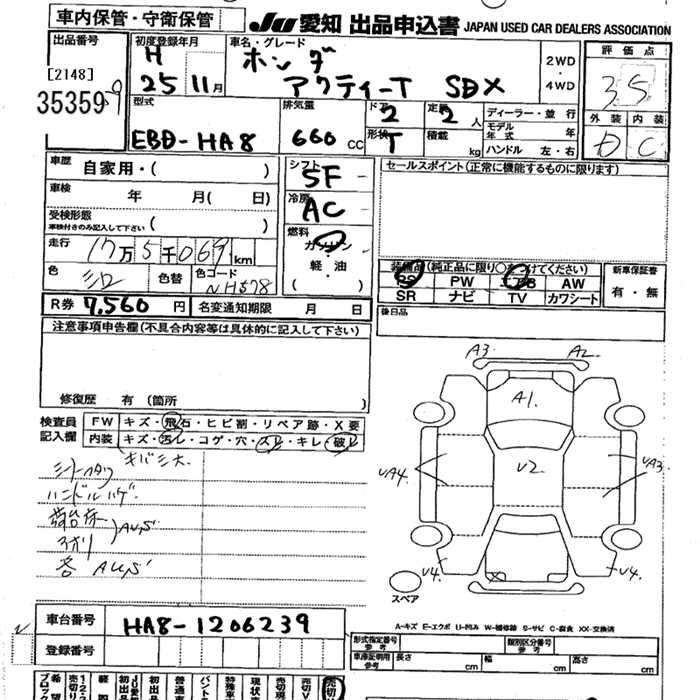 車内保管・守衛保管
JU 愛知 出品申込書 JAPAN USED CAR DEALERS ASSOCIATION
出品番号 [2148] 35359
初度登録年月 H 25 11月
車名・グレード ホンダ アクティーT SDX
2WD ・ 4WD
評価点 3.5
外装 D 内装 C
型式 EBD-HA8
排気量 660 cc
ドア 2 形状 T
定員 2人 積載 kg
ディーラー・並行
モデル年式 年
ハンドル 左・右
車歴 自家用・( )
車検 年 月( 日)
受検形態 車検付きのみ記入して下さい ( )
走行 17万5千069km
色 シロ 色替 色コード NH578
シフト 5F
冷房 AC
燃料 ガソリン・軽・油 ( )
セールスポイント(正常に機能するものに限ります)
装備品(純正品に限り○をつけてください)
PS PW エアB AW
SR ナビ TV カワシート
新車保証書 有・無
R券 7,560円 名変通知期限 月 日
後日品
注意事項申告欄(不具合内容等は具体的に記入して下さい)
修復歴 有 (箇所
検査員記入欄
FW キズ・飛石・ヒビ割・リペア跡・X要
内装 キズ・汚レ・コゲ・穴・スレ・キレ・破レ
ハンドルハゲ
A3 A2
A1
U2
UA4 UA3
U4 U4
X
スペア
A-キズ E-エクボ U-凹み W-補修跡 S-サビ C-腐食 XX-交換済
車台番号 HA8-1206239
登録番号
形式指定番号 参考
類別区分番号 参考
車庫証明用 参考 長さ cm 幅 cm 高さ cm